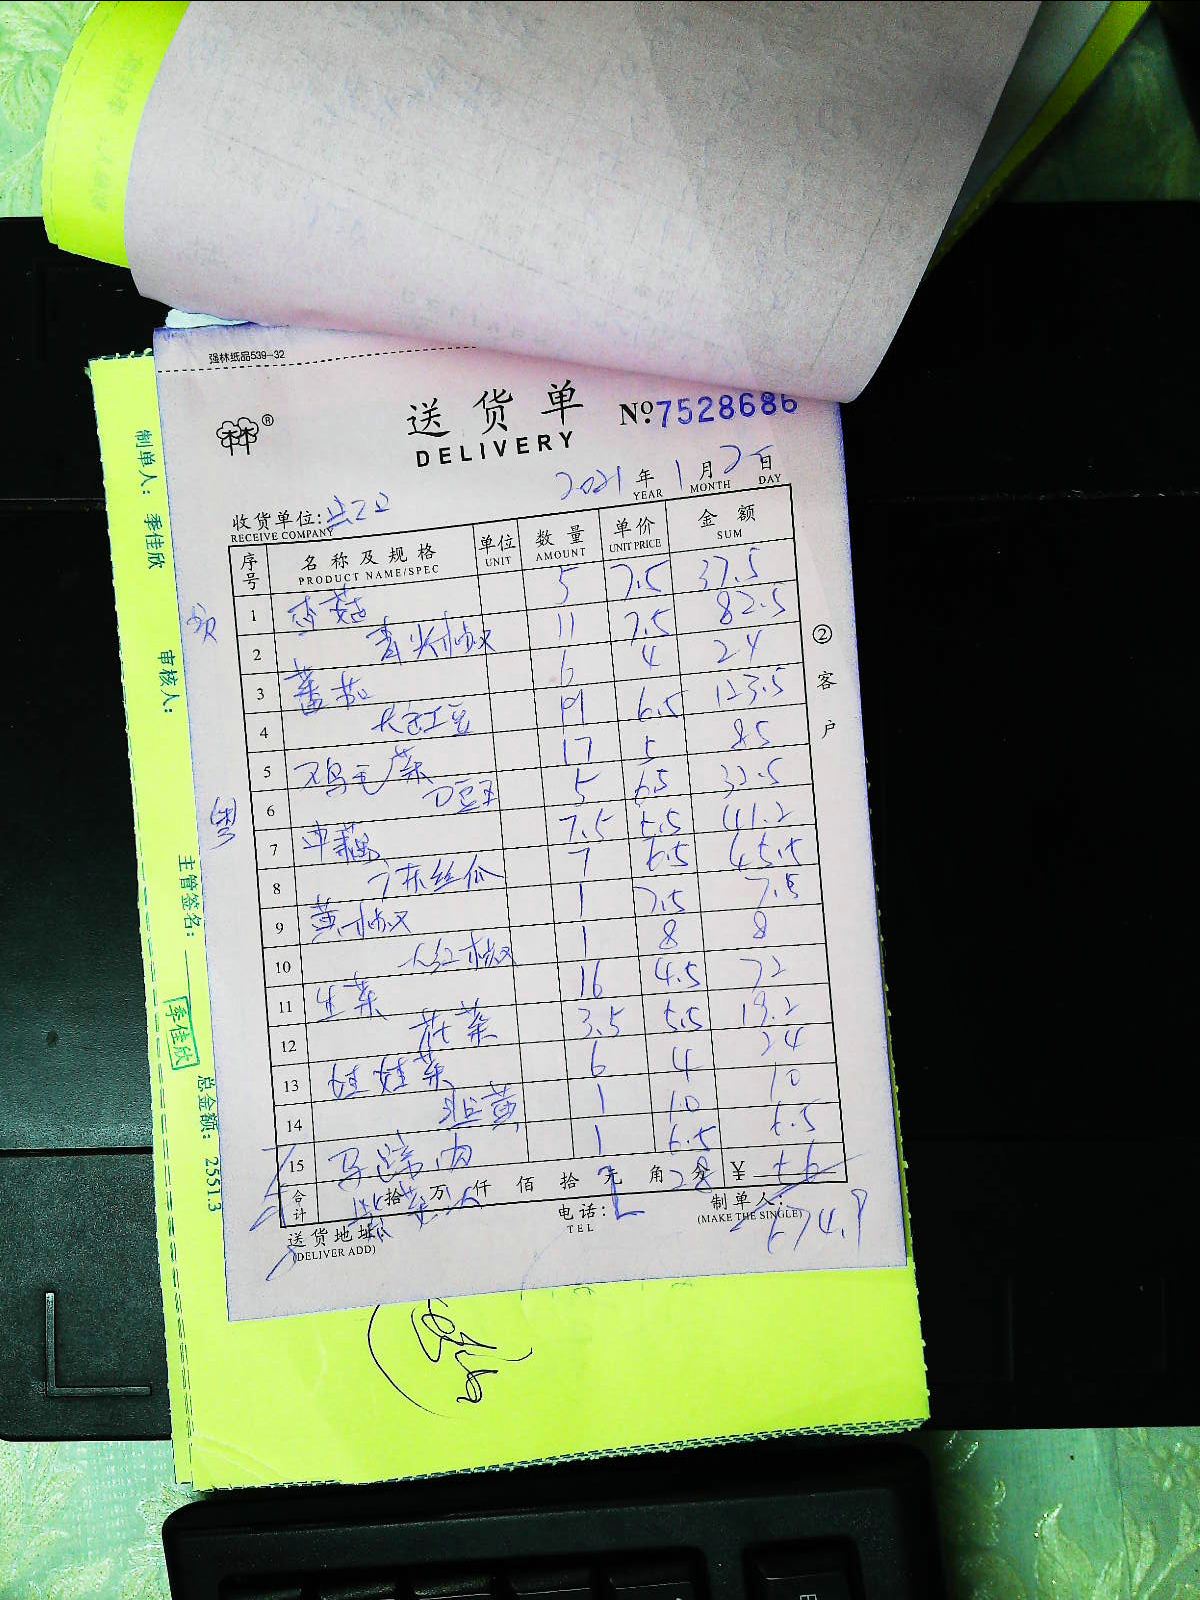 强林纸品539-32
送货单
DELIVERY
No.7528686
2021年1月2日
YEAR MONTH DAY
收货单位:
RECEIVE COMPANY
序号 名称及规格 单位 数量 单价 金额
PRODUCT NAME/SPEC UNIT AMOUNT UNIT PRICE SUM
1 香菇 5 7.5 37.5
2 青尖椒 11 7.5 82.5
3 蕃茄 6 4 24
4 19 6.5 123.5
5 鸡毛菜 17 5 85
6 刀豆 5 6.5 32.5
7 7.5 5.5 41.2
8 广东丝瓜 7 6.5 45.5
9 黄椒 1 7.5 7.5
10 红椒 1 8 8
11 生菜 16 4.5 72
12 花菜 3.5 5.5 19.2
13 娃娃菜 6 4 24
14 韭黄 1 10 10
15 马蹄肉 1 6.5 6.5
合计 拾 万 仟 佰 拾 元 角 分 ¥ 56
2 28
送货地址:
(DELIVER ADD)
电话:
TEL
制单人:
(MAKE THE SINGLE)
674.9
②客户
制单人: 季佳欣
审核人:
主管签名:
季佳欣
总金额: 2551.3